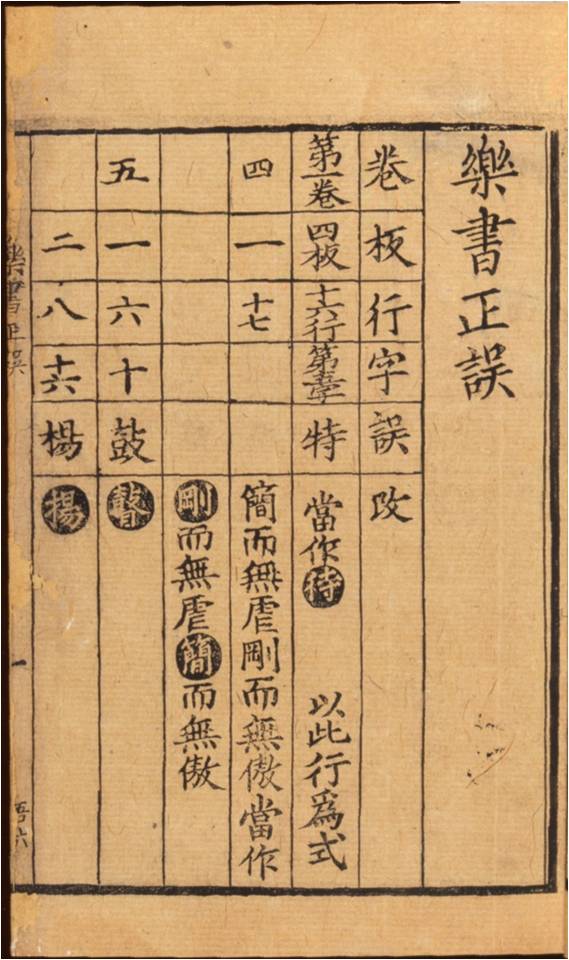 樂書正誤
卷 板 行 字 誤 攺
第一卷 四板 十六行 第壹字 特 當作待 以此行爲式
四 一 十七 簡而無虐剛而無傲當作
剛而無虐簡而無傲
五 一 六 十 鼓 瞽
二 八 十六 楊 揚
樂書正誤 一